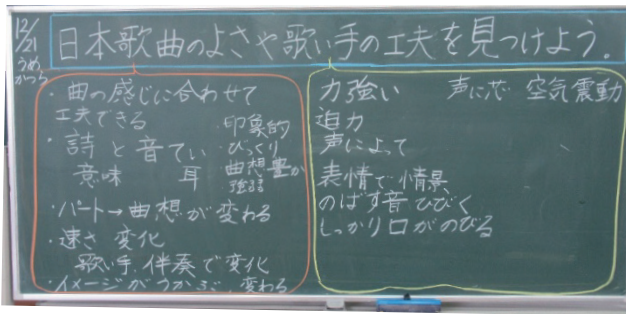 12/21
日本歌曲のよさや歌い手の工夫を見つけよう。
・曲の感じに合わせて
工夫できる
・詩と音てい
意味 耳
・印象的
・びっくり
曲想豊か
強弱
・パート→曲想が変わる
・速さ 変化
歌い手、伴奏で変化
・イメージがうかぶ、変わる
力強い 声に芯 空気震動
迫力
声によって
表情で情景
のばす音ひびく
しっかり口がのびる